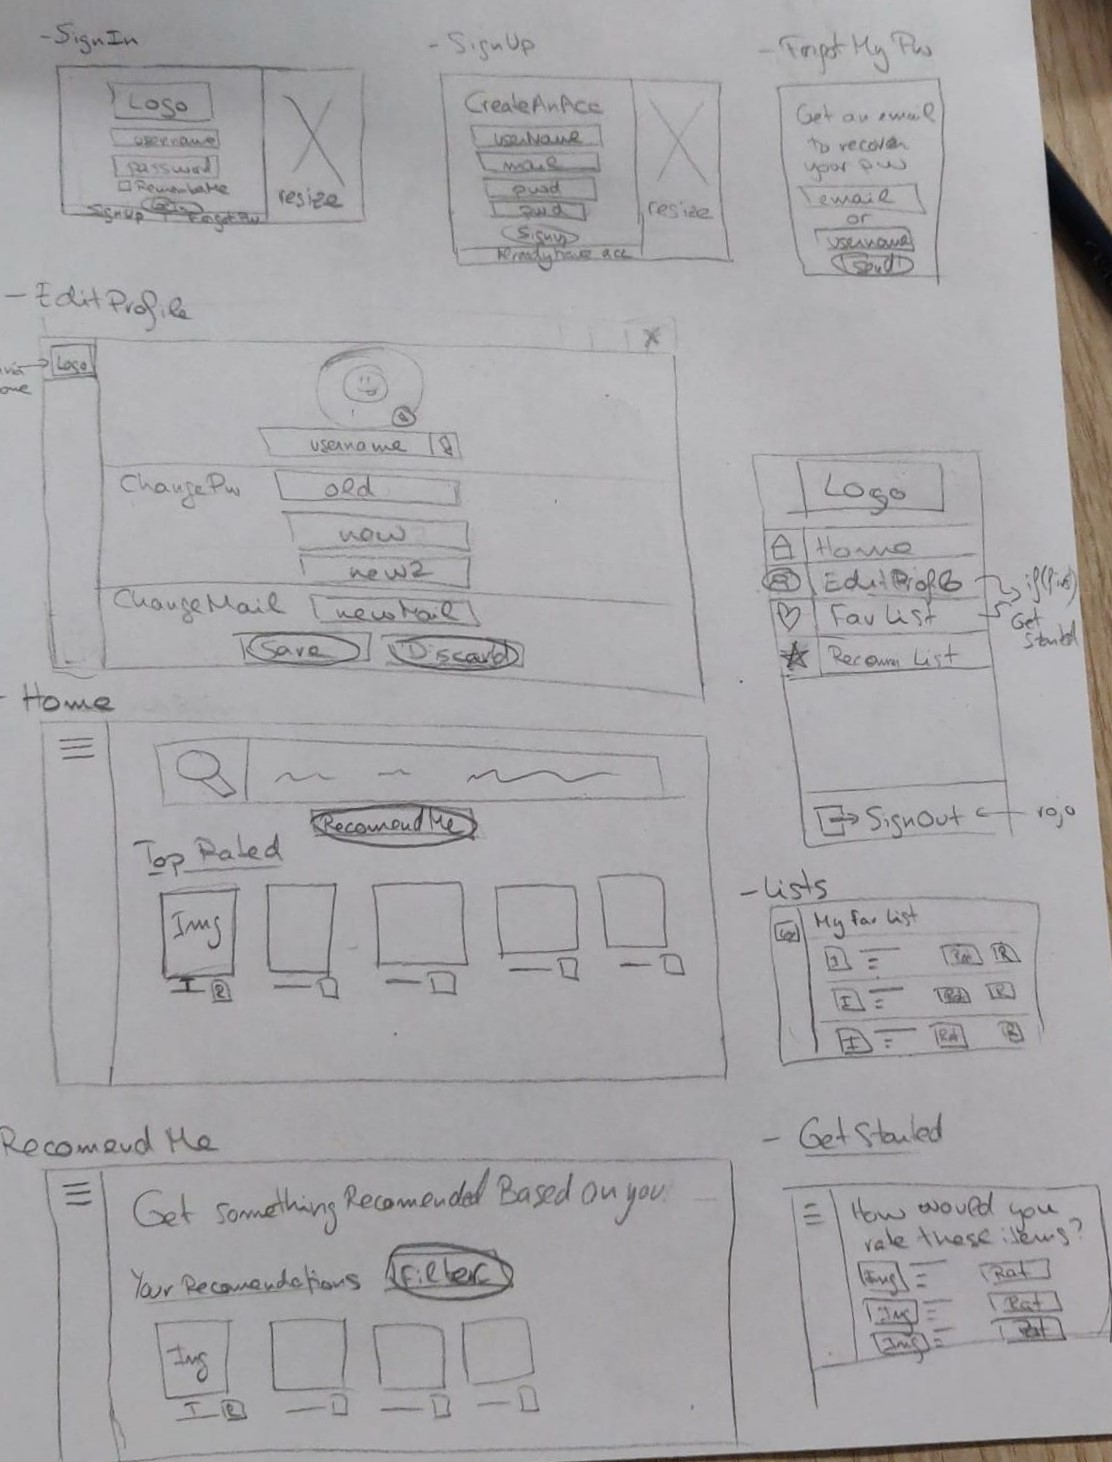 -SignIn
Logo
username
password
RememberMe
SignUp
ForgotPw
resize
-SignUp
CreateAnAcc
userName
mail
pwd
pwd
SignUp
Alreadyhave acc
resize
-Forgot My Pw
Get an email
to recover
your pw
email
or
username
Send
-EditProfile
Logo
username
ChangePw
old
new
new2
ChangeMail
newMail
Save
Discard
Logo
Home
EditProfile
Fav List
Recomm List
Get
Started
SignOut
rojo
- Home
RecomendMe
Top Rated
Img
I R
-Lists
My Fav List
I Rat R
I Rat R
I Rat R
Recomend Me
Get something Recomended Based on you
Your Recomendations
Filter
Img
I R
- GetStarted
How would you
rate these items?
Img Rat
Img Rat
Img Rat